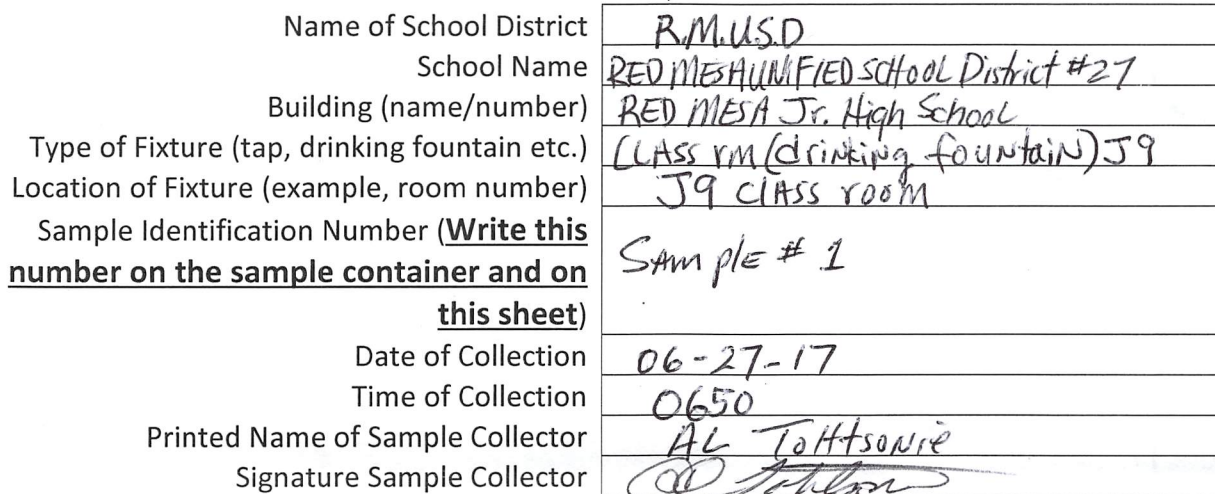 Name of School District R.M.U.S.D
School Name RED MESA UNIFIED SCHOOL District #27
Building (name/number) RED MESA Jr. High School
Type of Fixture (tap, drinking fountain etc.) CLASS rm (drinking fountain) J9
Location of Fixture (example, room number) J9 CLASS room
Sample Identification Number (Write this
number on the sample container and on
this sheet) SAMPLE # 1
Date of Collection 06-27-17
Time of Collection 0650
Printed Name of Sample Collector AL Tohtsonie
Signature Sample Collector